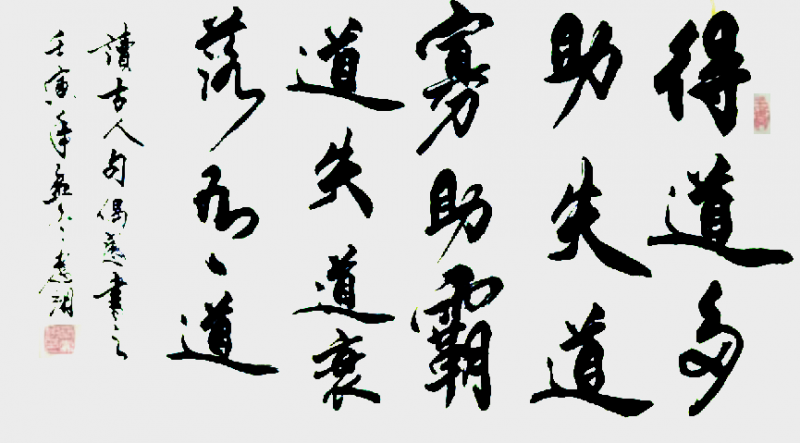 得道多
助失道
寡助霸
道失道衰
落 道
讀古人句偶感書之
壬寅年